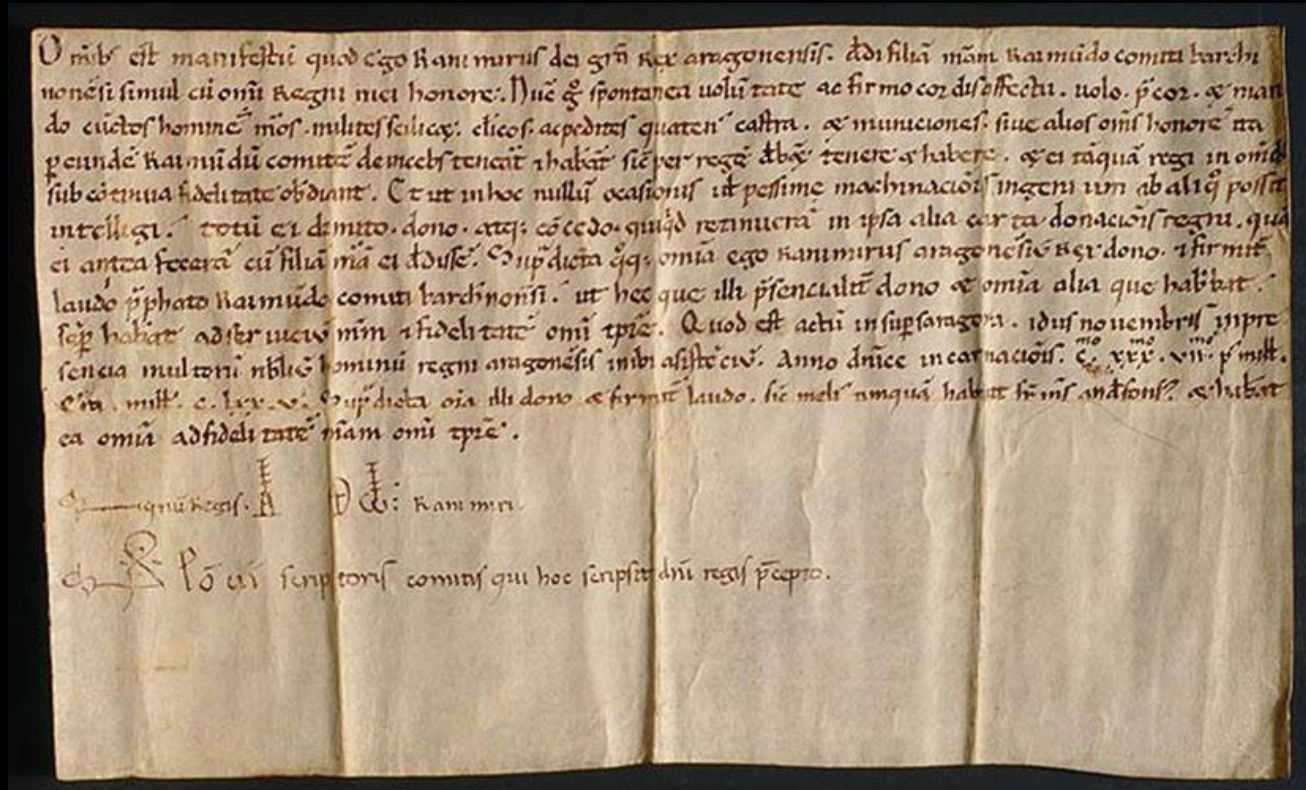 Omib; est manifestū quod ego Ranimirus dei grā Rex aragonensis. dedi filiā meam Raimūdo comiti barchi
nonēsi simul cū omī Regni mei honore. Nūc g° spontanea uolūtate ac firmo cordis affectu. uolo. p̄cor. & man
do cūctos homines meos. milites scilicet. clīcos. ac pedites quaten' castra. & municiones. siue alios omīs honores ita
p eundē Raimūdū comitē deinceps teneāt & habeāt sic per regē debēt tenere & habere. & ei tāquā regi in omib;
sub cōtinua fidelitate obediant. Et ut in hoc nullū ocasionis ul pessime machinaciōis ingenium ab aliq° possit
intelligi. totū ei dimito. dono. atq; cōcedo. quicqd retinuerā in ipsa alia carta donaciōis regni. quā
ei antea fecerā cū filiā meā ei dedisse. Supdicta q°q; omīa ego Ranimirus aragonēsis Rex dono. & firmit̄
laudo p̄phato Raimūdo comiti barchinonēsi. ut hec que illi p̄sencialit̄ dono & omīa alia que habebat.
semp habeat ad seruiciū meum & fidelitatē omī tpre. Quod est actū in sup saragoza. idus nouembris in pre
sencia multorū nobiliū hominū regni aragonēsis inibi asistēciū. Anno dnice incarnaciōis. c.mo xxx.mo vii.mo p° mill.
Era. mill. c. lxx. v. Supdicta oīa illi dono & firmit̄ laudo. sic meli' umquā habuit fr ms andefons'. & habeat
ea omīa ad fidelitatē meam omī tpre.
Signū Regis. Ranimiri.
Sig Poncii scriptoris comitis qui hoc scripsit dni regis p̄cepto.